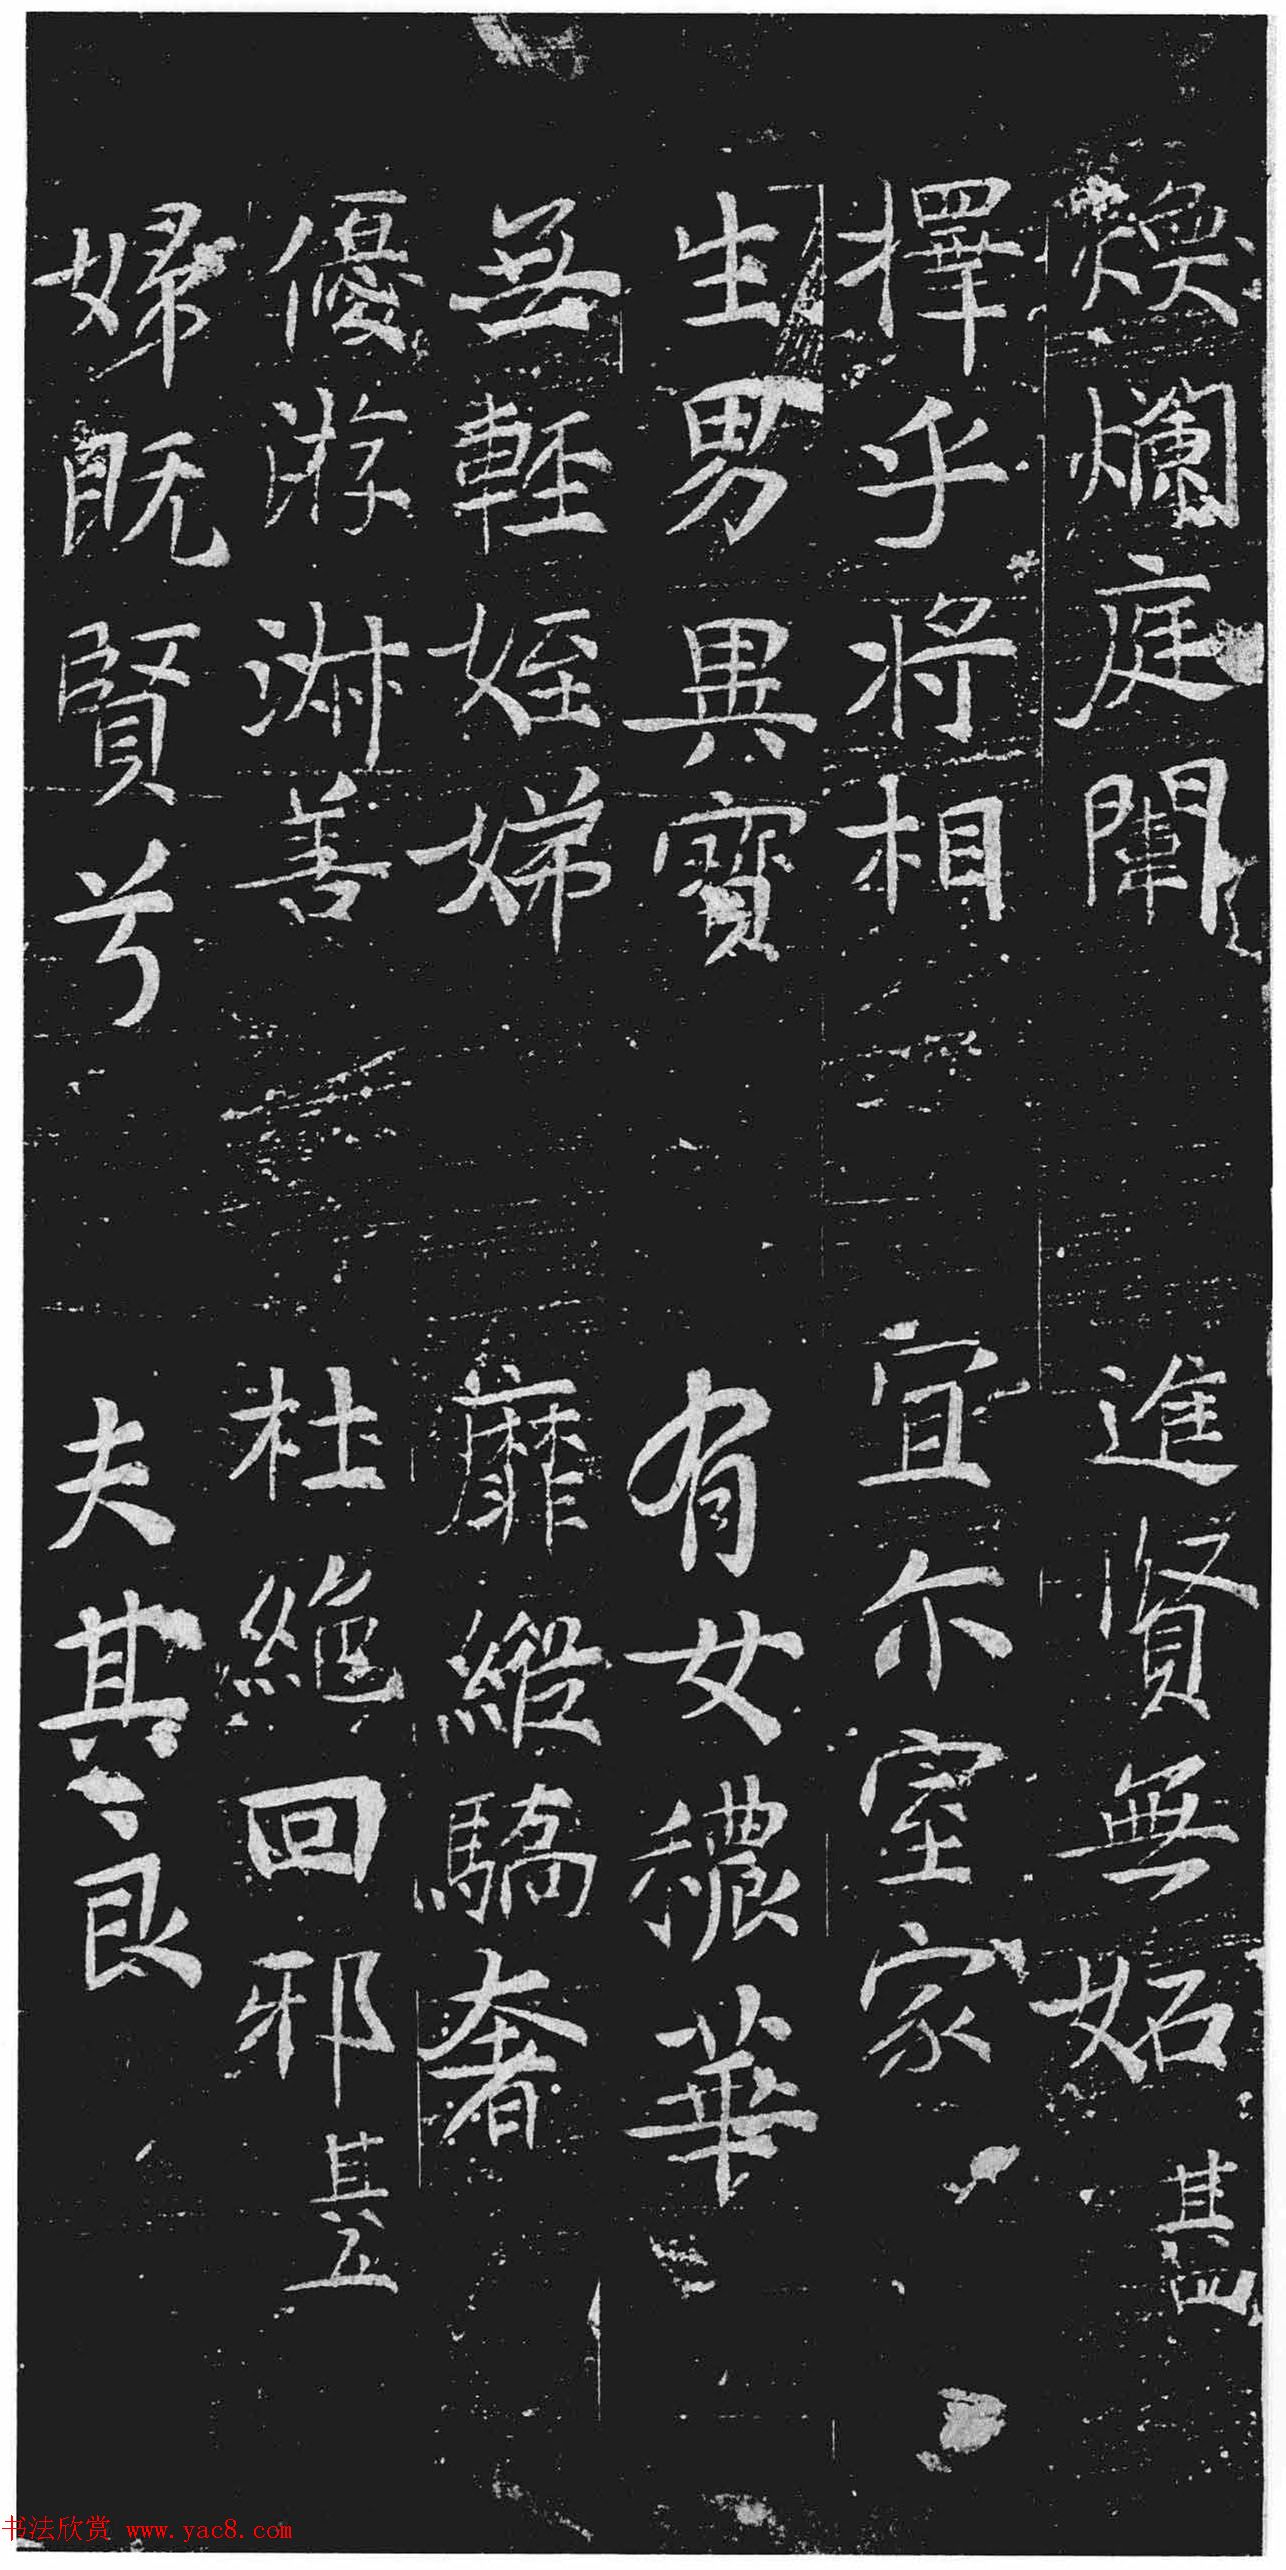 煥爛庭闈 進賢無妬 其四
擇乎將相 宜尒室家
生男異寶 有女穠華
無輕姪娣 靡縱驕奢
優游淋善 杜絕回邪 其五
婦既賢兮 夫其良
书法欣赏 www.yac8.com